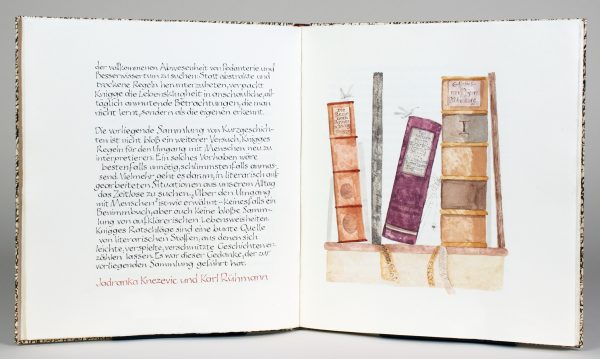 der vollkommenen Abwesenheit von Pedanterie und
Besserwissertum zu suchen: Statt abstrakte und
trockene Regeln herunterzubeten, verpackt
Knigge die Lebensklugheit in anschauliche, all-
täglich anmutende Betrachtungen, die man
nicht lernt, sondern als die eigenen erkennt.
Die vorliegende Sammlung von Kurzgeschich-
ten ist nicht bloß ein weiterer Versuch, Knigges
Regeln für den Umgang mit Menschen neu zu
interpretieren. Ein solches Vorhaben wäre
bestenfalls unnötig, schlimmstenfalls anmas-
send. Vielmehr geht es darum, in literarisch auf-
gearbeiteten Situationen aus unserem Alltag
das Zeitlose zu suchen. „Über den Umgang
mit Menschen" ist wie erwähnt - keinesfalls ein
Benimmbuch, aber auch keine bloße Samm-
lung von aufklärerischen Lebensweisheiten.
Knigges Ratschläge sind eine bunte Quelle
von literarischen Stoffen, aus denen sich
leichte, verspielte, verschmitzte Geschichten er-
zählen lassen. Es war dieser Gedanke, der zur
vorliegenden Sammlung geführt hat.
Jadranka Knezevic und Karl Rühmann
I